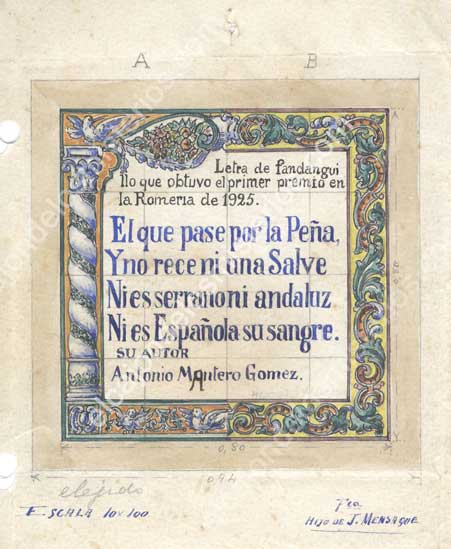 A B
Letra de Fandangui
llo que obtuvo el primer premio en
la Romeria de 1925.
El que pase por la Peña,
Y no rece ni una Salve
Ni es serrano ni andaluz
Ni es Española su sangre.
SU AUTOR
Antonio Mantero Gomez.
0,80
0,80
0,94
elejido
ESCALA 10 x 100
Fca
HIJO DE J. MENSAQUE